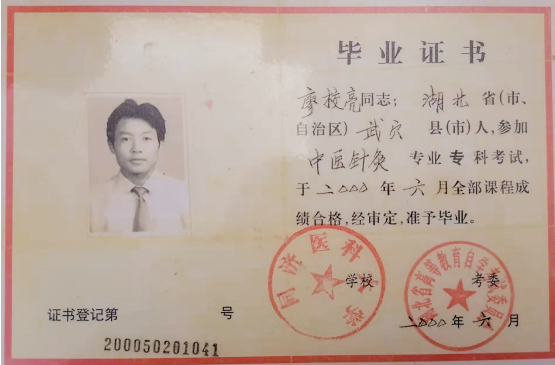 毕业证书
廖校亮同志；湖北省(市、
自治区)武穴县(市)人,参加
中医针灸专业专科考试,
于二〇〇〇年六月全部课程成
绩合格,经审定,准予毕业。
同济医科大学
学校
湖北省高等教育自学考试委员会
考委
证书登记第 号
二〇〇〇年六月
200050201041